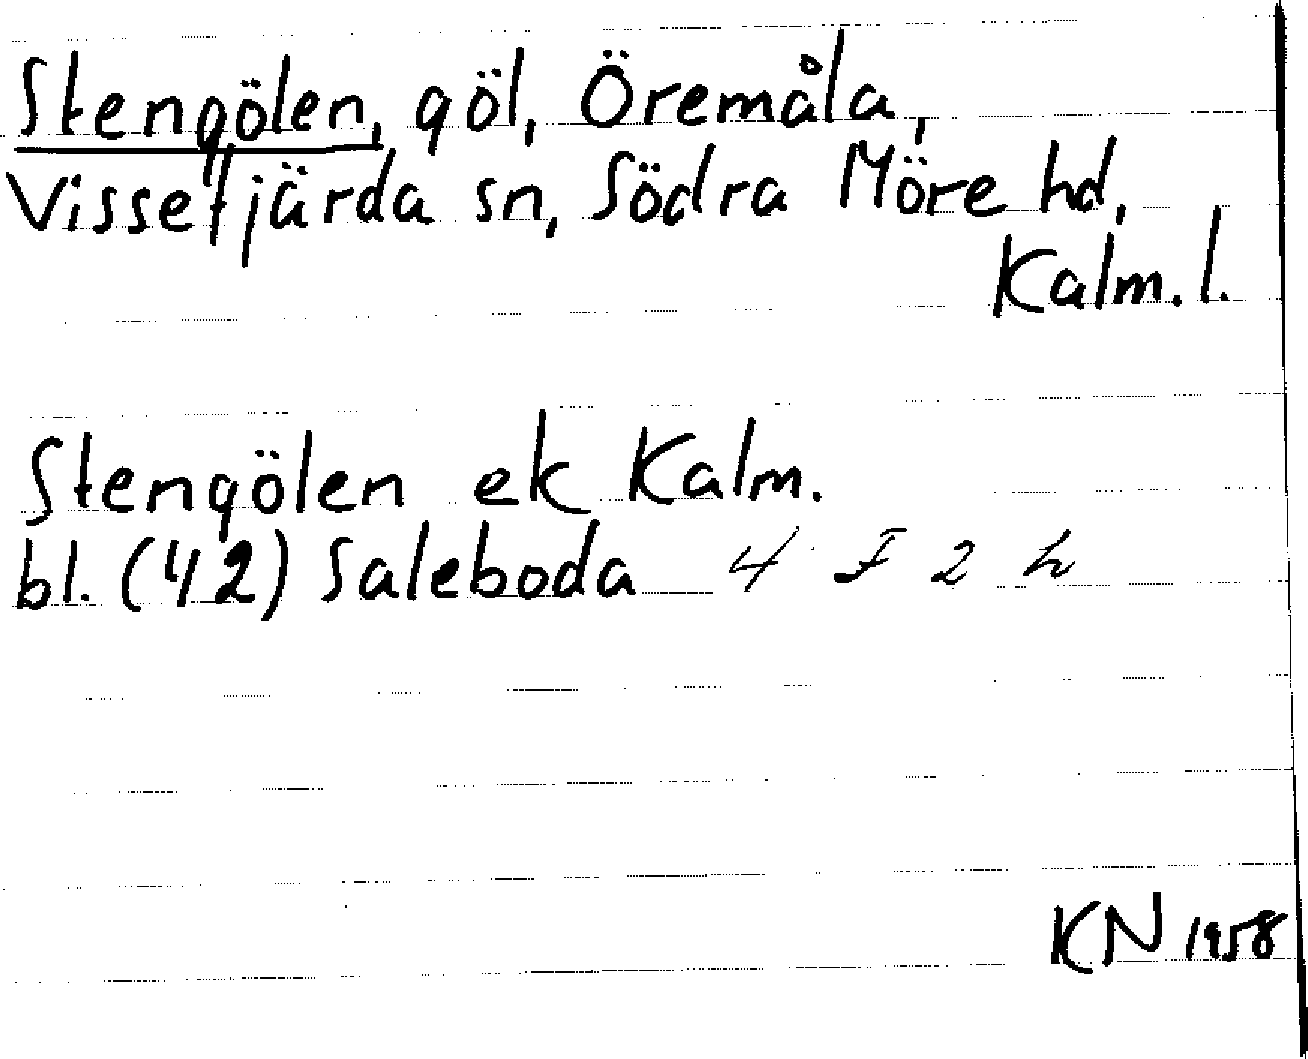 Stengölen, göl, Öremåla,
Vissefjärda sn, Södra Möre hd,
Kalm. l.
Stengölen ek Kalm.
bl. (42) Saleboda 4 F 2 h
KN 1958